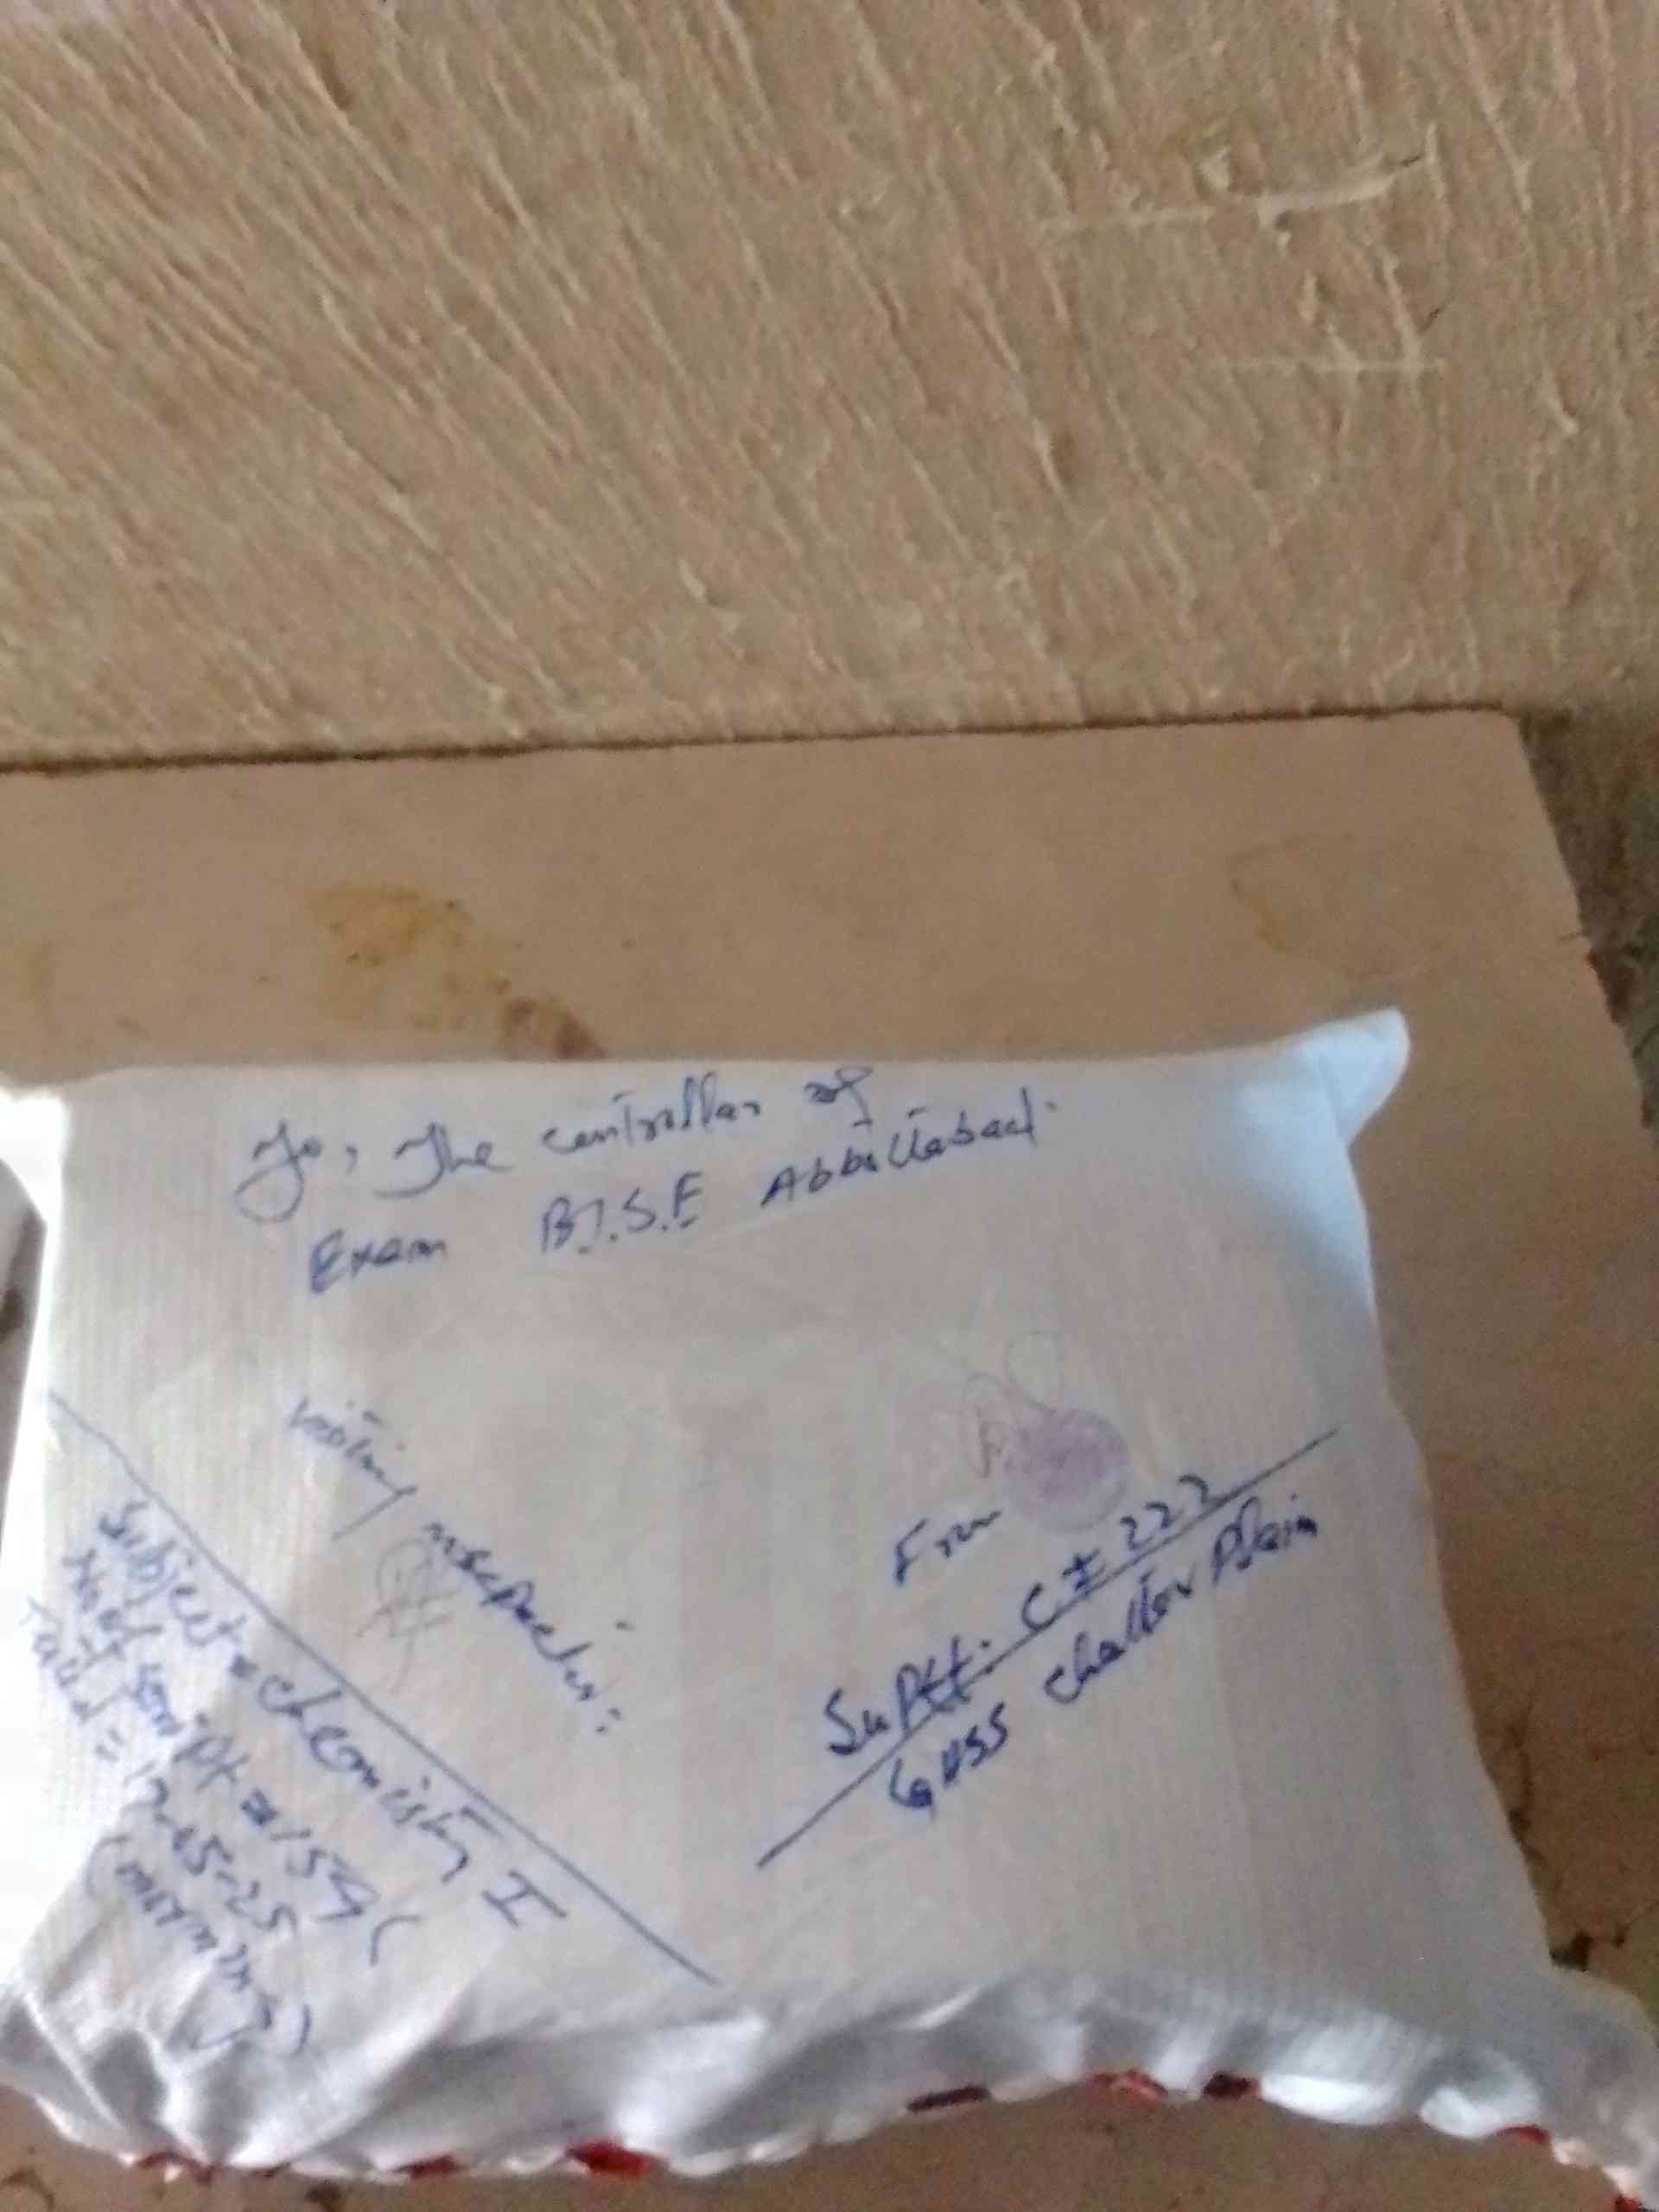 To, The controller of
Exam B.I.S.E Abbottabad.
visiting inspector:
From
Suptt. C # 222
GHSS chatter Plain
Subject = chemistry I
No of script = 154
= 12-05-25